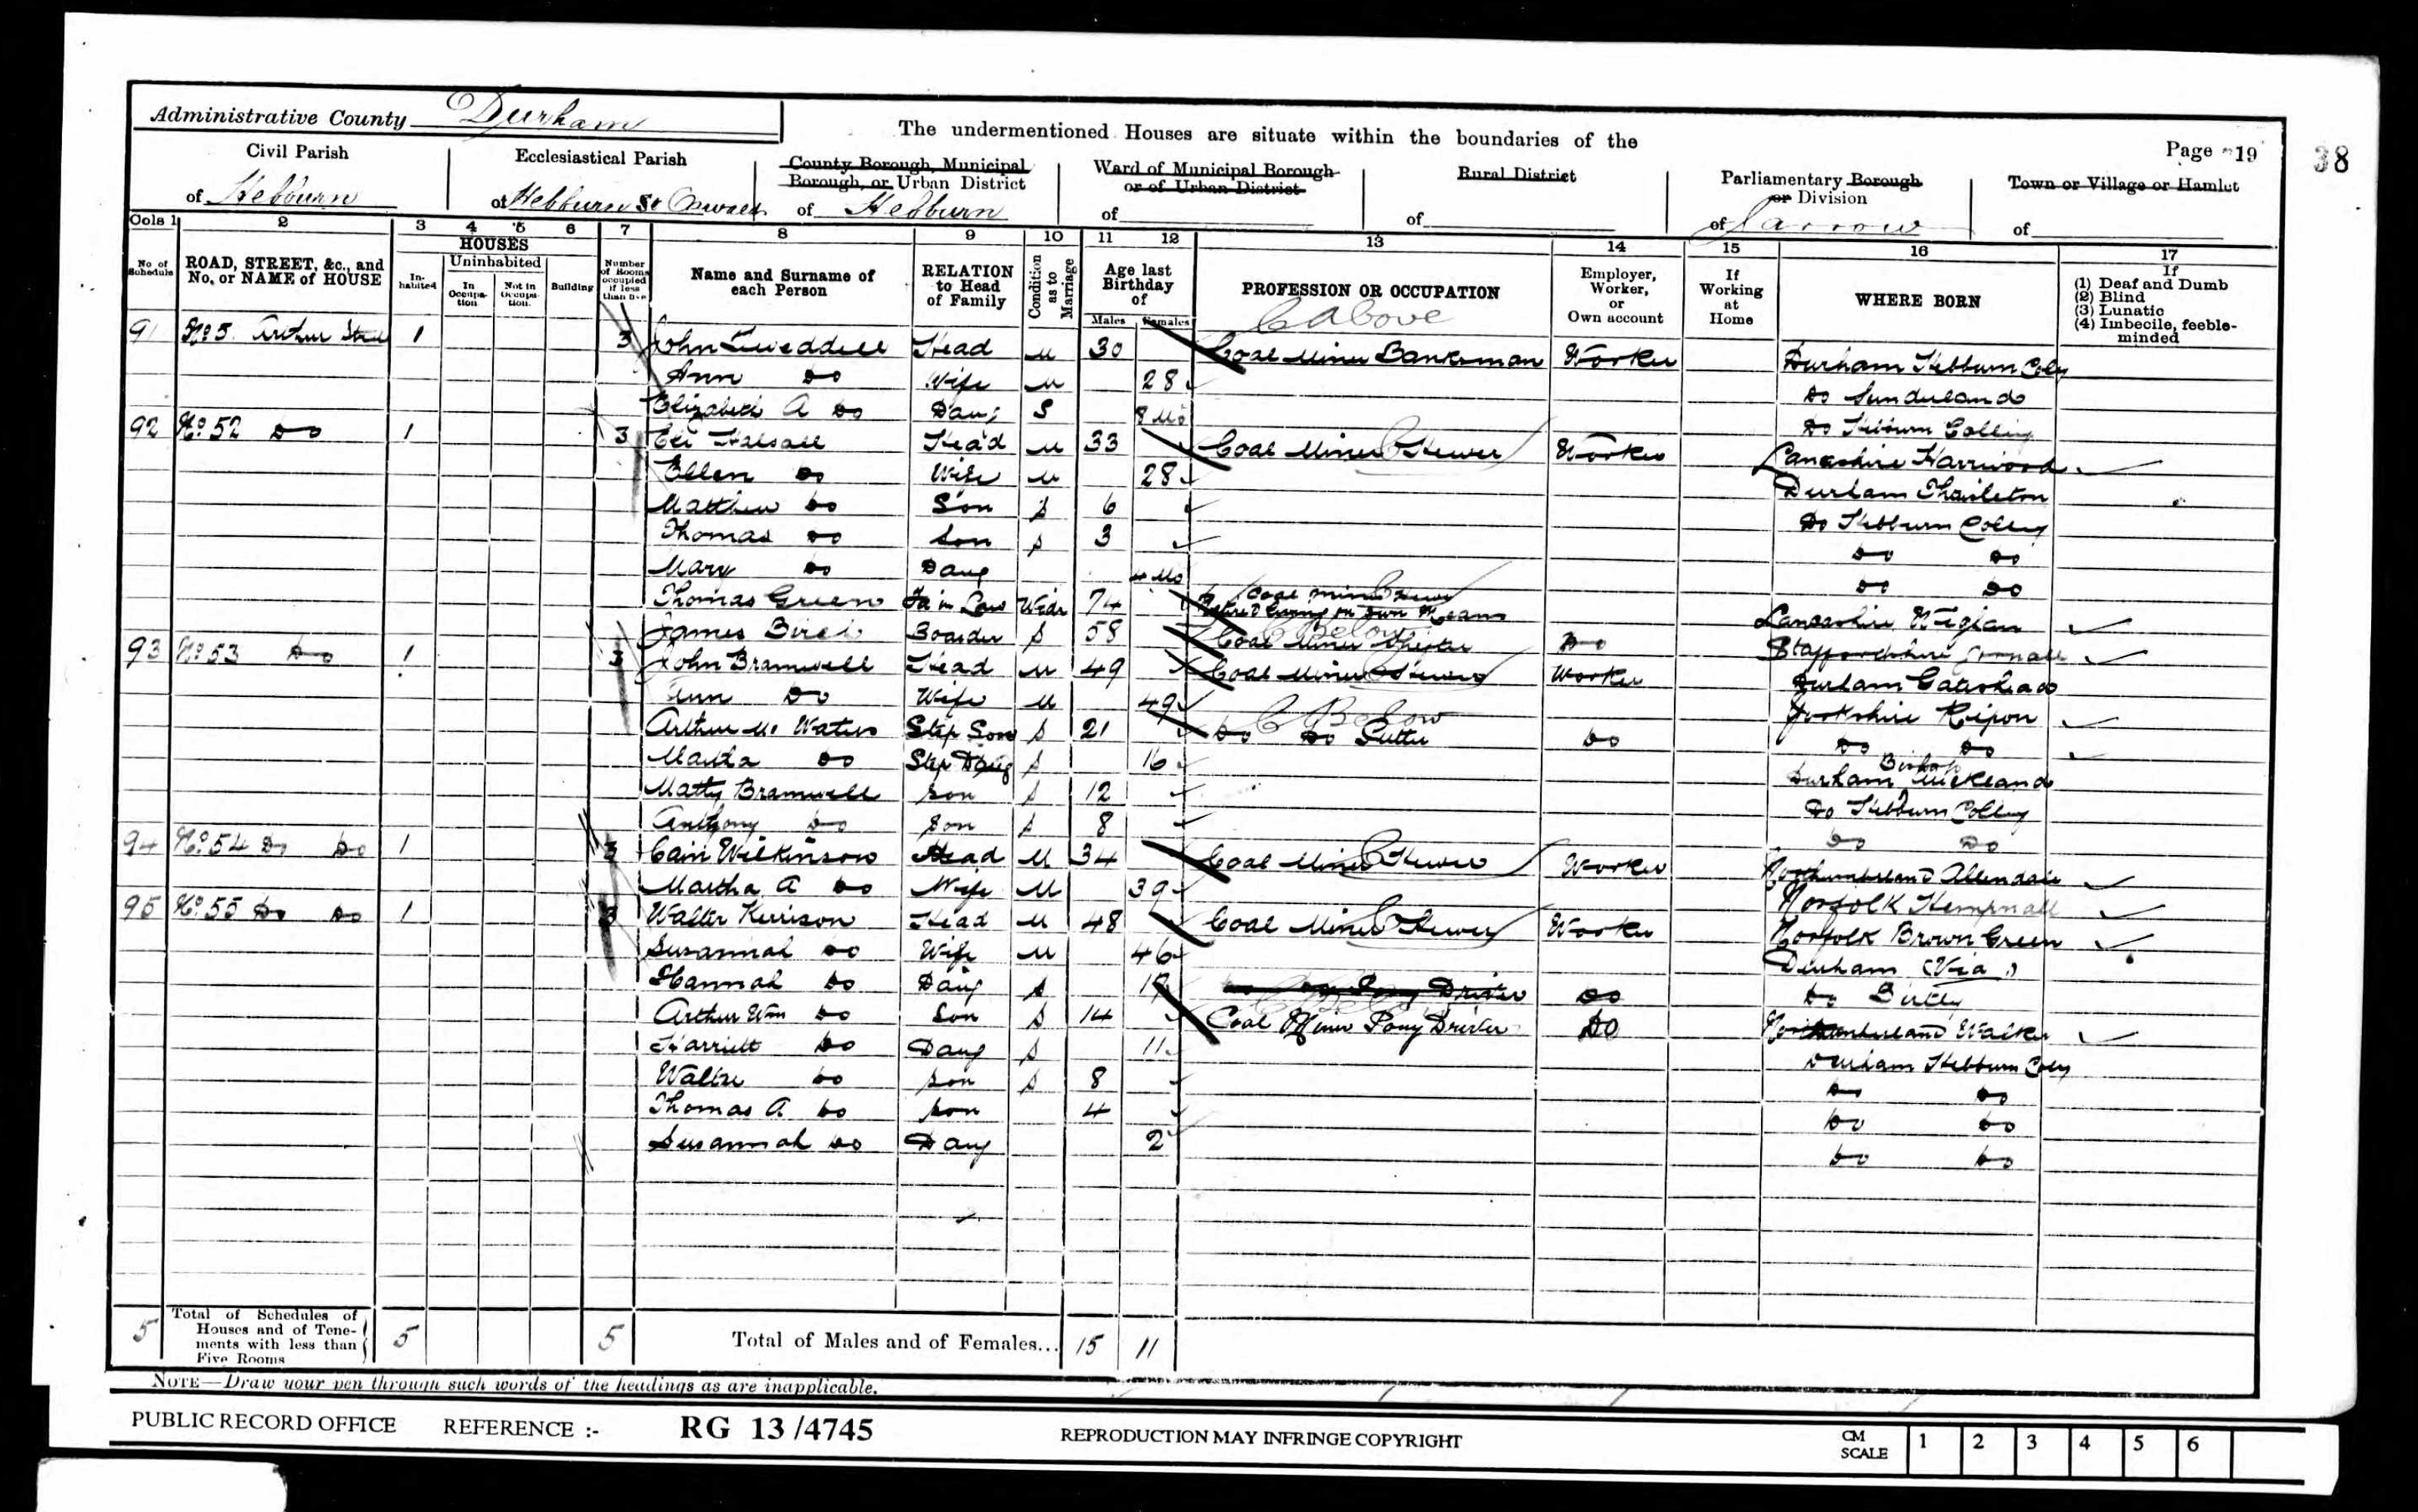 Administrative County Durham
The undermentioned Houses are situate within the boundaries of the
Page 19
38
Civil Parish of Hebburn
Ecclesiastical Parish of Hebburn St Oswald
County Borough, Municipal Borough, or Urban District of Hebburn
Ward of Municipal Borough or of Urban District of
Rural District of
Parliamentary Borough or Division of Jarrow
Town or Village or Hamlet of
Cols 1 2 3 4 5 6 7 8 9 10 11 12 13 14 15 16 17
No. of Schedule
ROAD, STREET, &c., and No. or NAME of HOUSE
HOUSES
Inhabited
Uninhabited
In Occupation
Not in Occupation.
Building
Number of Rooms occupied if less than five
Name and Surname of each Person
RELATION to Head of Family
Condition as to Marriage
Age last Birthday of
Males Females
PROFESSION OR OCCUPATION
Employer, Worker, or Own account
If Working at Home
WHERE BORN
If (1) Deaf and Dumb (2) Blind (3) Lunatic (4) Imbecile, feeble-minded
C above
91 1 3 John Tweddell Head M 30 Coal Miner Banksman Worker Durham Hebburn Coly
Ann Do Wife M 28 Do Sunderland
Elizabeth A Do Daug S 8 Mo Do Hebburn Colliery
92 No 52 Do 1 3 Eli Halsall Head M 33 Coal Miner Hewer Worker Lancashire Harwood
Ellen Do Wife M 28 Durham
Matthew Do Son S 6 Do Hebburn Colliery
Thomas Do Son S 3 Do Do
Mary Do Daug 4 Mo Do Do
Coal Miner Hewer
Thomas Green Fa in Law Widr 74 Retired Living on own Means Lancashire
Below
James Birch Boarder S 58 Coal Miner Shifter Do Staffordshire
93 No 53 Do 1 3 John Bramwell Head M 49 Coal Miner Hewer Worker Durham Gateshead
Ann Do Wife M 49 Yorkshire Ripon
C Below
Arthur M. Waters Step Son S 21 Do Do Putter Do Do Do
Martha Do Step Daug S 16 Durham Bishop Auckland
Matty Bramwell Son S 12 Do Hebburn Colliery
Anthony Do Son S 8 Do Do
94 No 54 Do Do 1 3 Cain Wilkinson Head M 34 Coal Miner Hewer Worker Northumberland Allendale
Martha A Do Wife M 39 Norfolk Hempnall
95 No 55 Do Do 1 3 Walter Kerrison Head M 48 Coal Miner Hewer Worker Norfolk Brown Green
Susannah Do Wife M 46 Durham
Hannah Do Daug S Pony Driver Do Do Birtley
Arthur Wm Do Son S 14 Coal Miner Pony Driver Do Northumberland Walker
Harriett Do Daug S 11 Durham Hebburn Coly
Walter Do Son S 8 Do Do
Thomas A Do Son 4 Do Do
Susannah Do Daug 2 Do Do
5 Total of Schedules of Houses and of Tenements with less than Five Rooms 5 5 Total of Males and of Females... 15 11
NOTE—Draw your pen through such words of the headings as are inapplicable.
PUBLIC RECORD OFFICE REFERENCE :- RG 13/4745 REPRODUCTION MAY INFRINGE COPYRIGHT CM SCALE 1 2 3 4 5 6